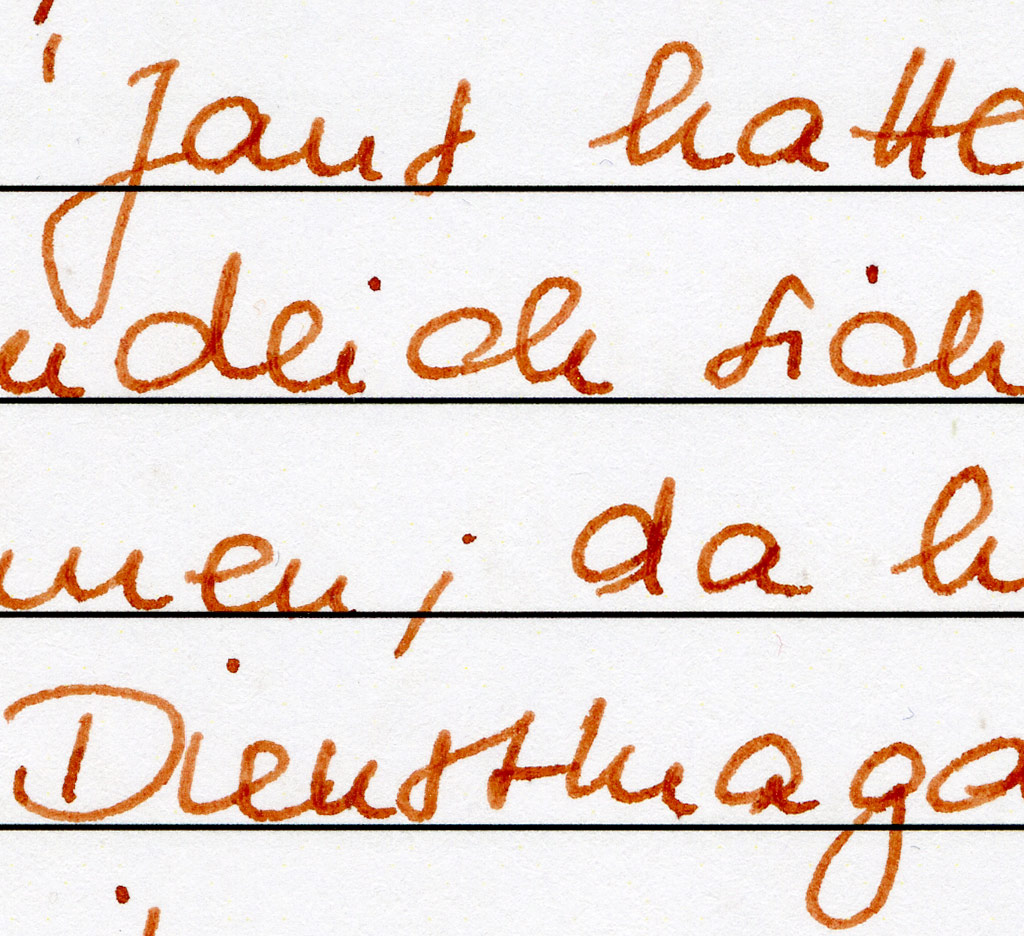 Jans hatte
ndlich sich
men; da h
Dienstmagd